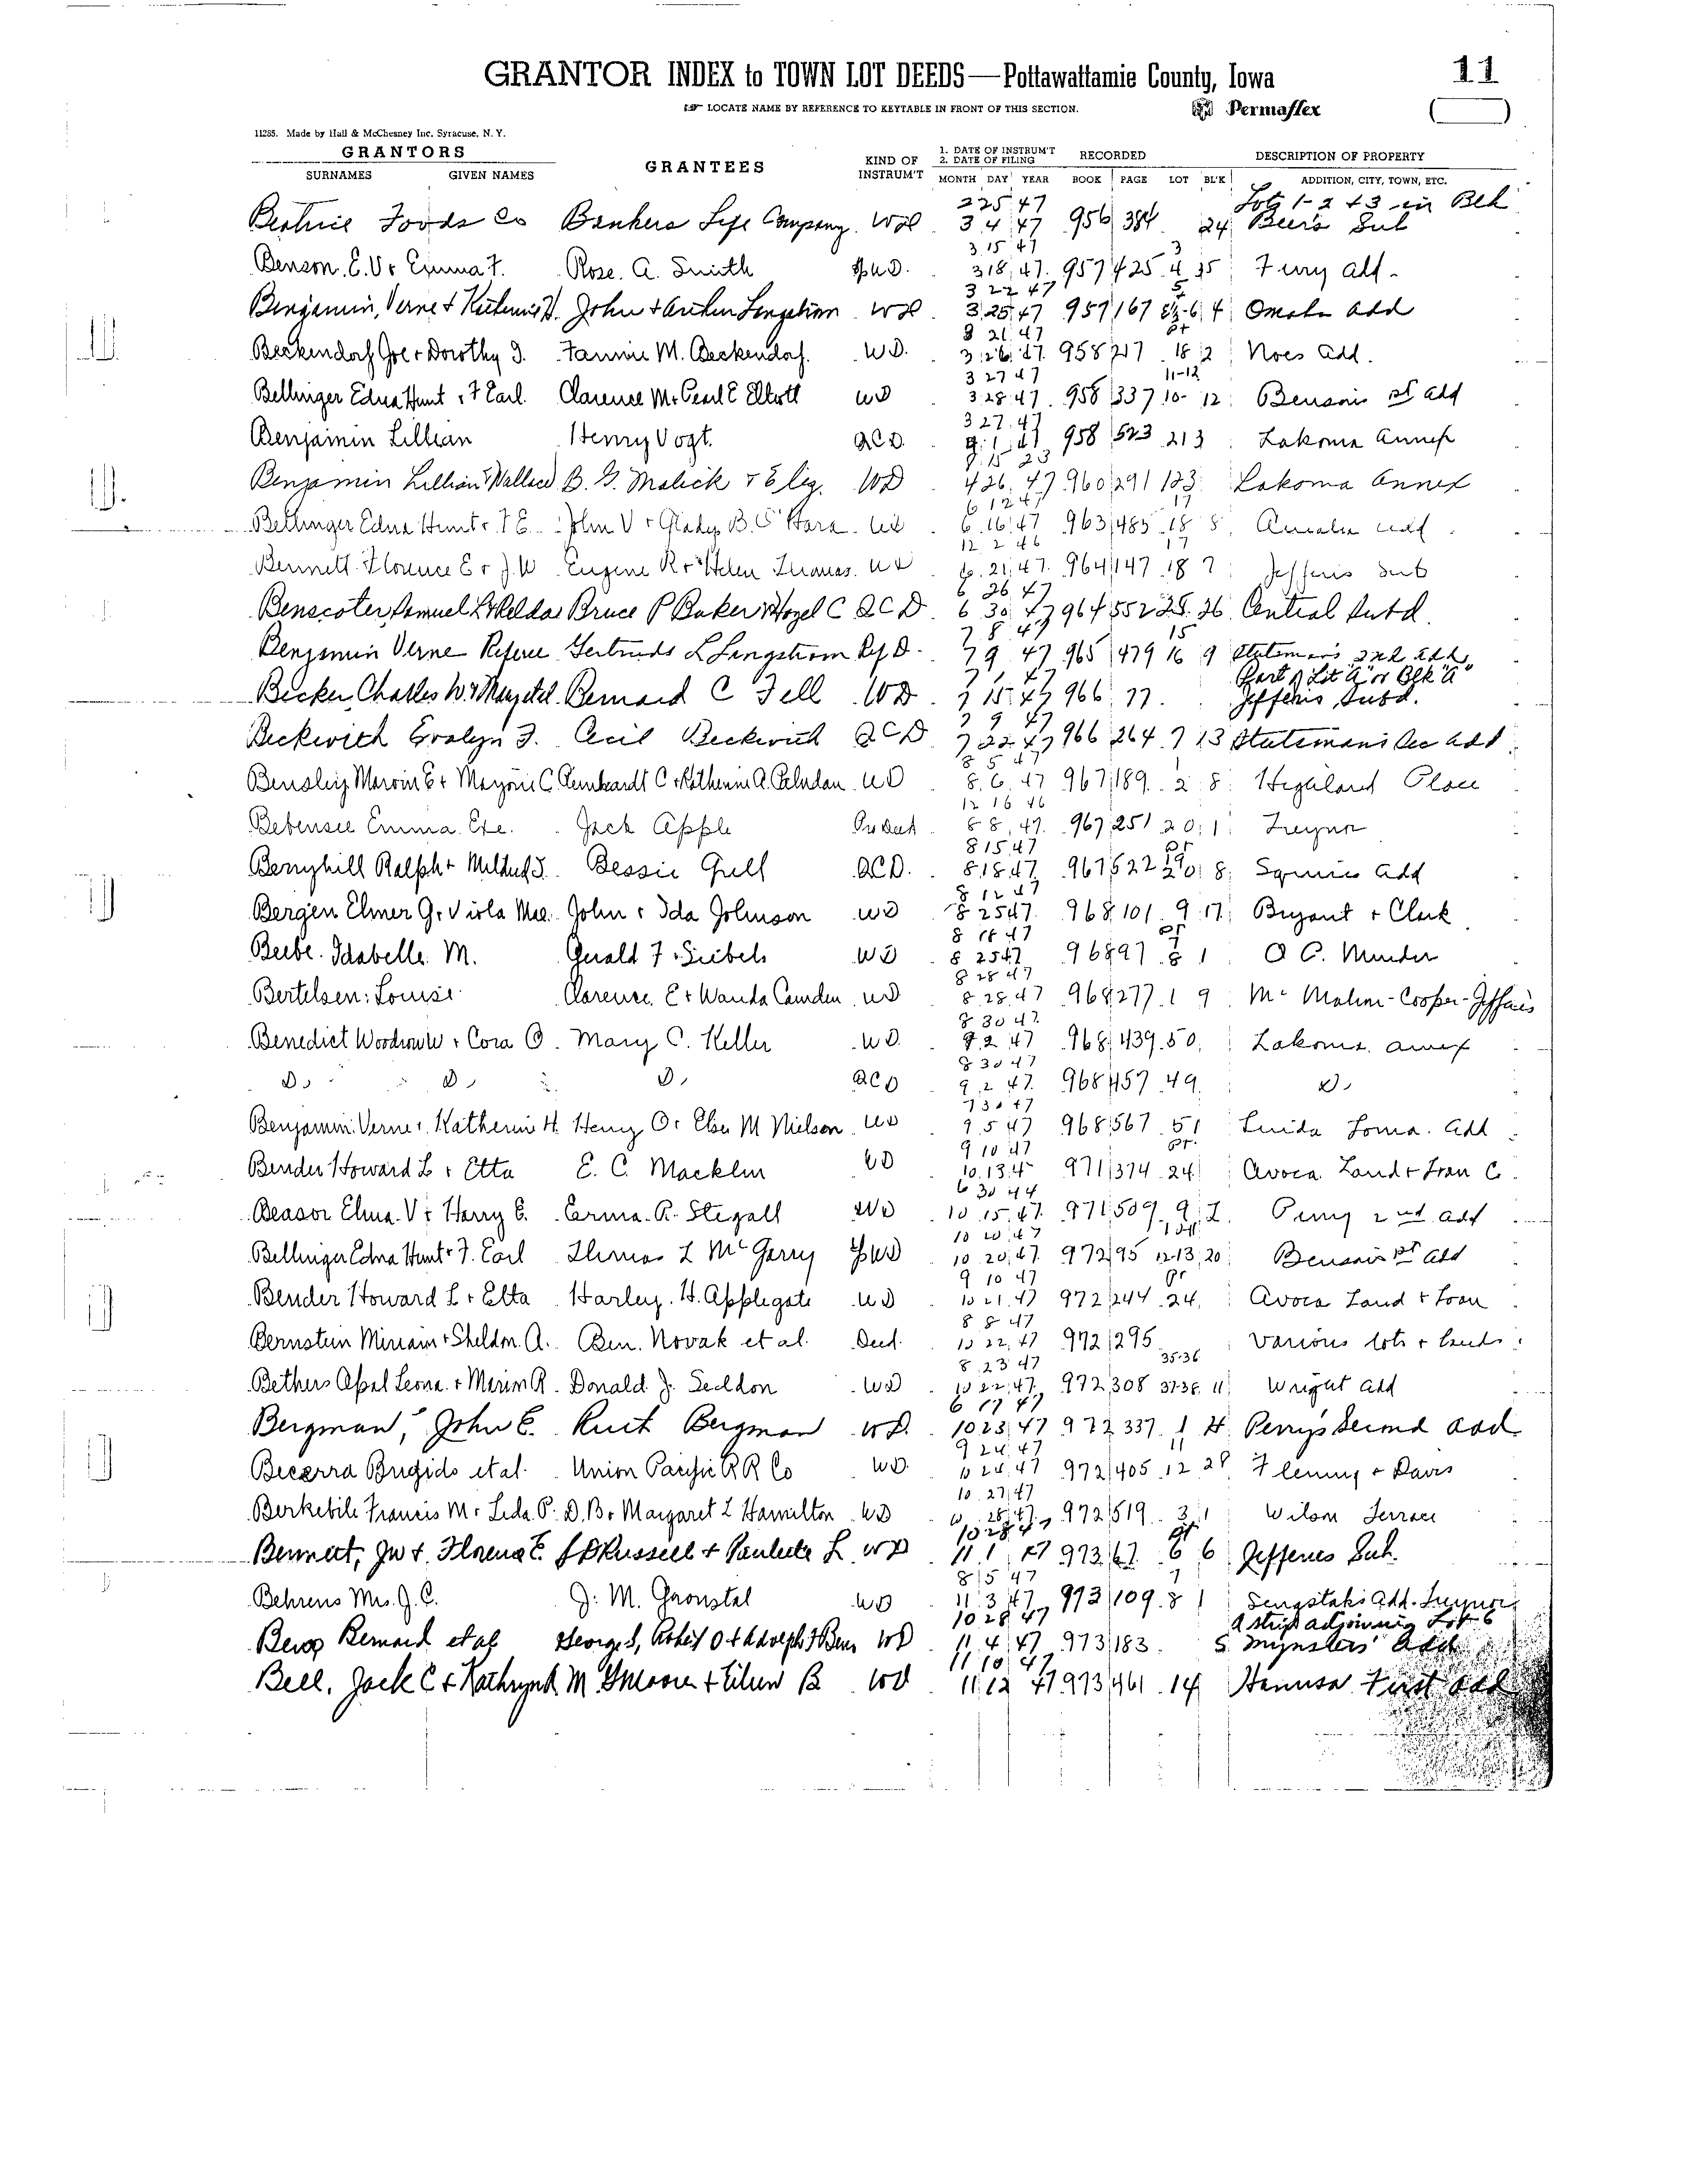 GRANTOR INDEX to TOWN LOT DEEDS—Pottawattamie County, Iowa 11
LOCATE NAME BY REFERENCE TO KEYTABLE IN FRONT OF THIS SECTION. Permaflex
11285. Made by Hall & McChesney Inc. Syracuse, N. Y.
GRANTORS GRANTEES KIND OF INSTRUM'T 1. DATE OF INSTRUM'T 2. DATE OF FILING RECORDED DESCRIPTION OF PROPERTY
SURNAMES GIVEN NAMES MONTH DAY YEAR BOOK PAGE LOT BL'K ADDITION, CITY, TOWN, ETC.
2 25 47 Lots 1-2 + 3 in Blk
Beatrice Foods Co Bankers Life Company WD 3 4 47 956 384 24 Beers Sub
3 15 47 3
Benson E.V + Emma F. Rose A. Smith 3 18 47 957 425 4 35 Ferry add
3 22 47 5
Benjamin, Verne + John + WD 3 25 47 957 167 4 Omaha add
21 47 pt
Beckendorf Joe + Dorothy J. Fannie M. Beckendorf WD. 3 26 47 958 217 18 2 Noes add.
3 27 47 11-12
Bellinger Edna Hunt + F Earl Clarence M + Pearl E Elliott WD 3 28 47 958 337 10- 12 Bensons 1st add
3 27 47
Benjamin Lillian Henry Vogt. QCD 1 47 958 523 213 Lakoma Annex
Benjamin Lillian + Wallace B. G. Malick + Eliz. WD 4 26 47 960 291 123 Lakoma Annex
6 12 47 17
Bellinger Edna Hunt + F E John V + Gladys B. O'Hara WD 6 16 47 963 485 18 8 add
12 2 46 17
Bennett Florence E + J.W Eugene R + Helen Thomas WD 6 21 47 964 147 18 7 Jefferis Sub
6 26 47
Benscoter, Samuel L + Relda Bruce P Baker + Hazel C QCD 6 30 47 964 552 25 26 Central Subd.
7 8 47 15
Benjamin Verne Referee Gertrude L Langstrom Ref D 7 9 47 965 479 16 9 Stutsman's 2nd add
7 1 47 Part of Lot "A" or Blk "A"
Becker, Charles W. + Bernard C Fell WD 7 15 47 966 77 Jefferis Subd.
7 9 47
Beckwith Evalyn J. Cecil Beckwith QCD 7 22 47 966 264 7 13 Stutsman's Sec add
8 5 47
Bensley Marvin E + Marjorie C. C + Katherine A. Paludan WD 8 6 47 967 189 2 8 Highland Place
12 16 46
Bebensee Emma Exe. Jack Apple 8 8 47 967 251 20 1 Treynor
8 15 47 pt
Berryhill Ralph + Mildred J. Bessie Gull QCD. 8 18 47 967 522 8 Squires add
8 12 47
Bergen Elmer G + Viola Mae John + Ida Johnson WD 8 25 47 968 101 9 17 Bryant + Clark
8 18 47 pt 7
Beebe Idabelle M. Gerald F Siebels WD 8 25 47 968 97 8 1
8 28 47
Bertelsen Louise Clarence E + Wanda Camden WD 8 28 47 968 277 1 9 McMahon-Cooper-Jefferis
8 30 47
Benedict Woodrow W + Cora O. Mary C. Keller WD 9 2 47 968 439 50 Lakoma annex
8 30 47
D. D. D. QCD 9 2 47 968 457 49 D.
7 30 47
Benjamin Verne + Katherine H. Henry O + Elsie M Nielson WD 9 5 47 968 567 51 Linda Loma add
9 10 47 pt.
Bender Howard L + Etta E. C. Macklin WD 10 13 4 971 374 24 Avoca Land + Loan C
6 30 44
Beasor Elma V + Harry E. Erma R. Stegall WD 10 15 47 971 509 9 I Perry 2nd add
10 20 47
Bellinger Edna Hunt + F. Earl Thomas L McGarry 10 20 47 972 95 12-13 20 Bensons 1st add
9 10 47 pt
Bender Howard L + Etta Harley H. Applegate WD 10 21 47 972 244 24 Avoca Land + Loan
8 8 47
Bernstein Miriam + Sheldon A. Ben Novak et al Deed 10 22 47 972 295 Various lots + lands
8 23 47 35-36
Bethers Opal Leona + Merim R. Donald J. Seddon WD 10 22 47 972 308 37-38 11 Wright add
6 17 47
Bergman, John E. Ruth Bergman WD. 10 23 47 972 337 1 H Perry's Second add
9 24 47 11
Becerra Brigido et al Union Pacific RR Co WD 10 24 47 972 405 12 28 Fleming + Davis
10 27 47
Berkebile Francis M + Leda P. D.B + Margaret L Hamilton WD 10 28 47 972 519 3 1 Wilson Terrace
10 28 47 pt
Bennett, JW + Florence E. Russell + Paulette L WD 11 1 47 973 67 6 6 Jefferies Sub.
8 5 47 7
Behrens Mrs. J. C. J. M. Gronstal WD 11 3 47 973 109 8 1 add. Treynor
10 28 47 A strip adjoining Lot 6
Bernard et al George S, Robert O + Adolph F WD 11 4 47 973 183 S. Mynsters' add
11 10 47
Bell, Jack C + Kathryn M + B WD 11 12 47 973 461 14 Hanusa First add